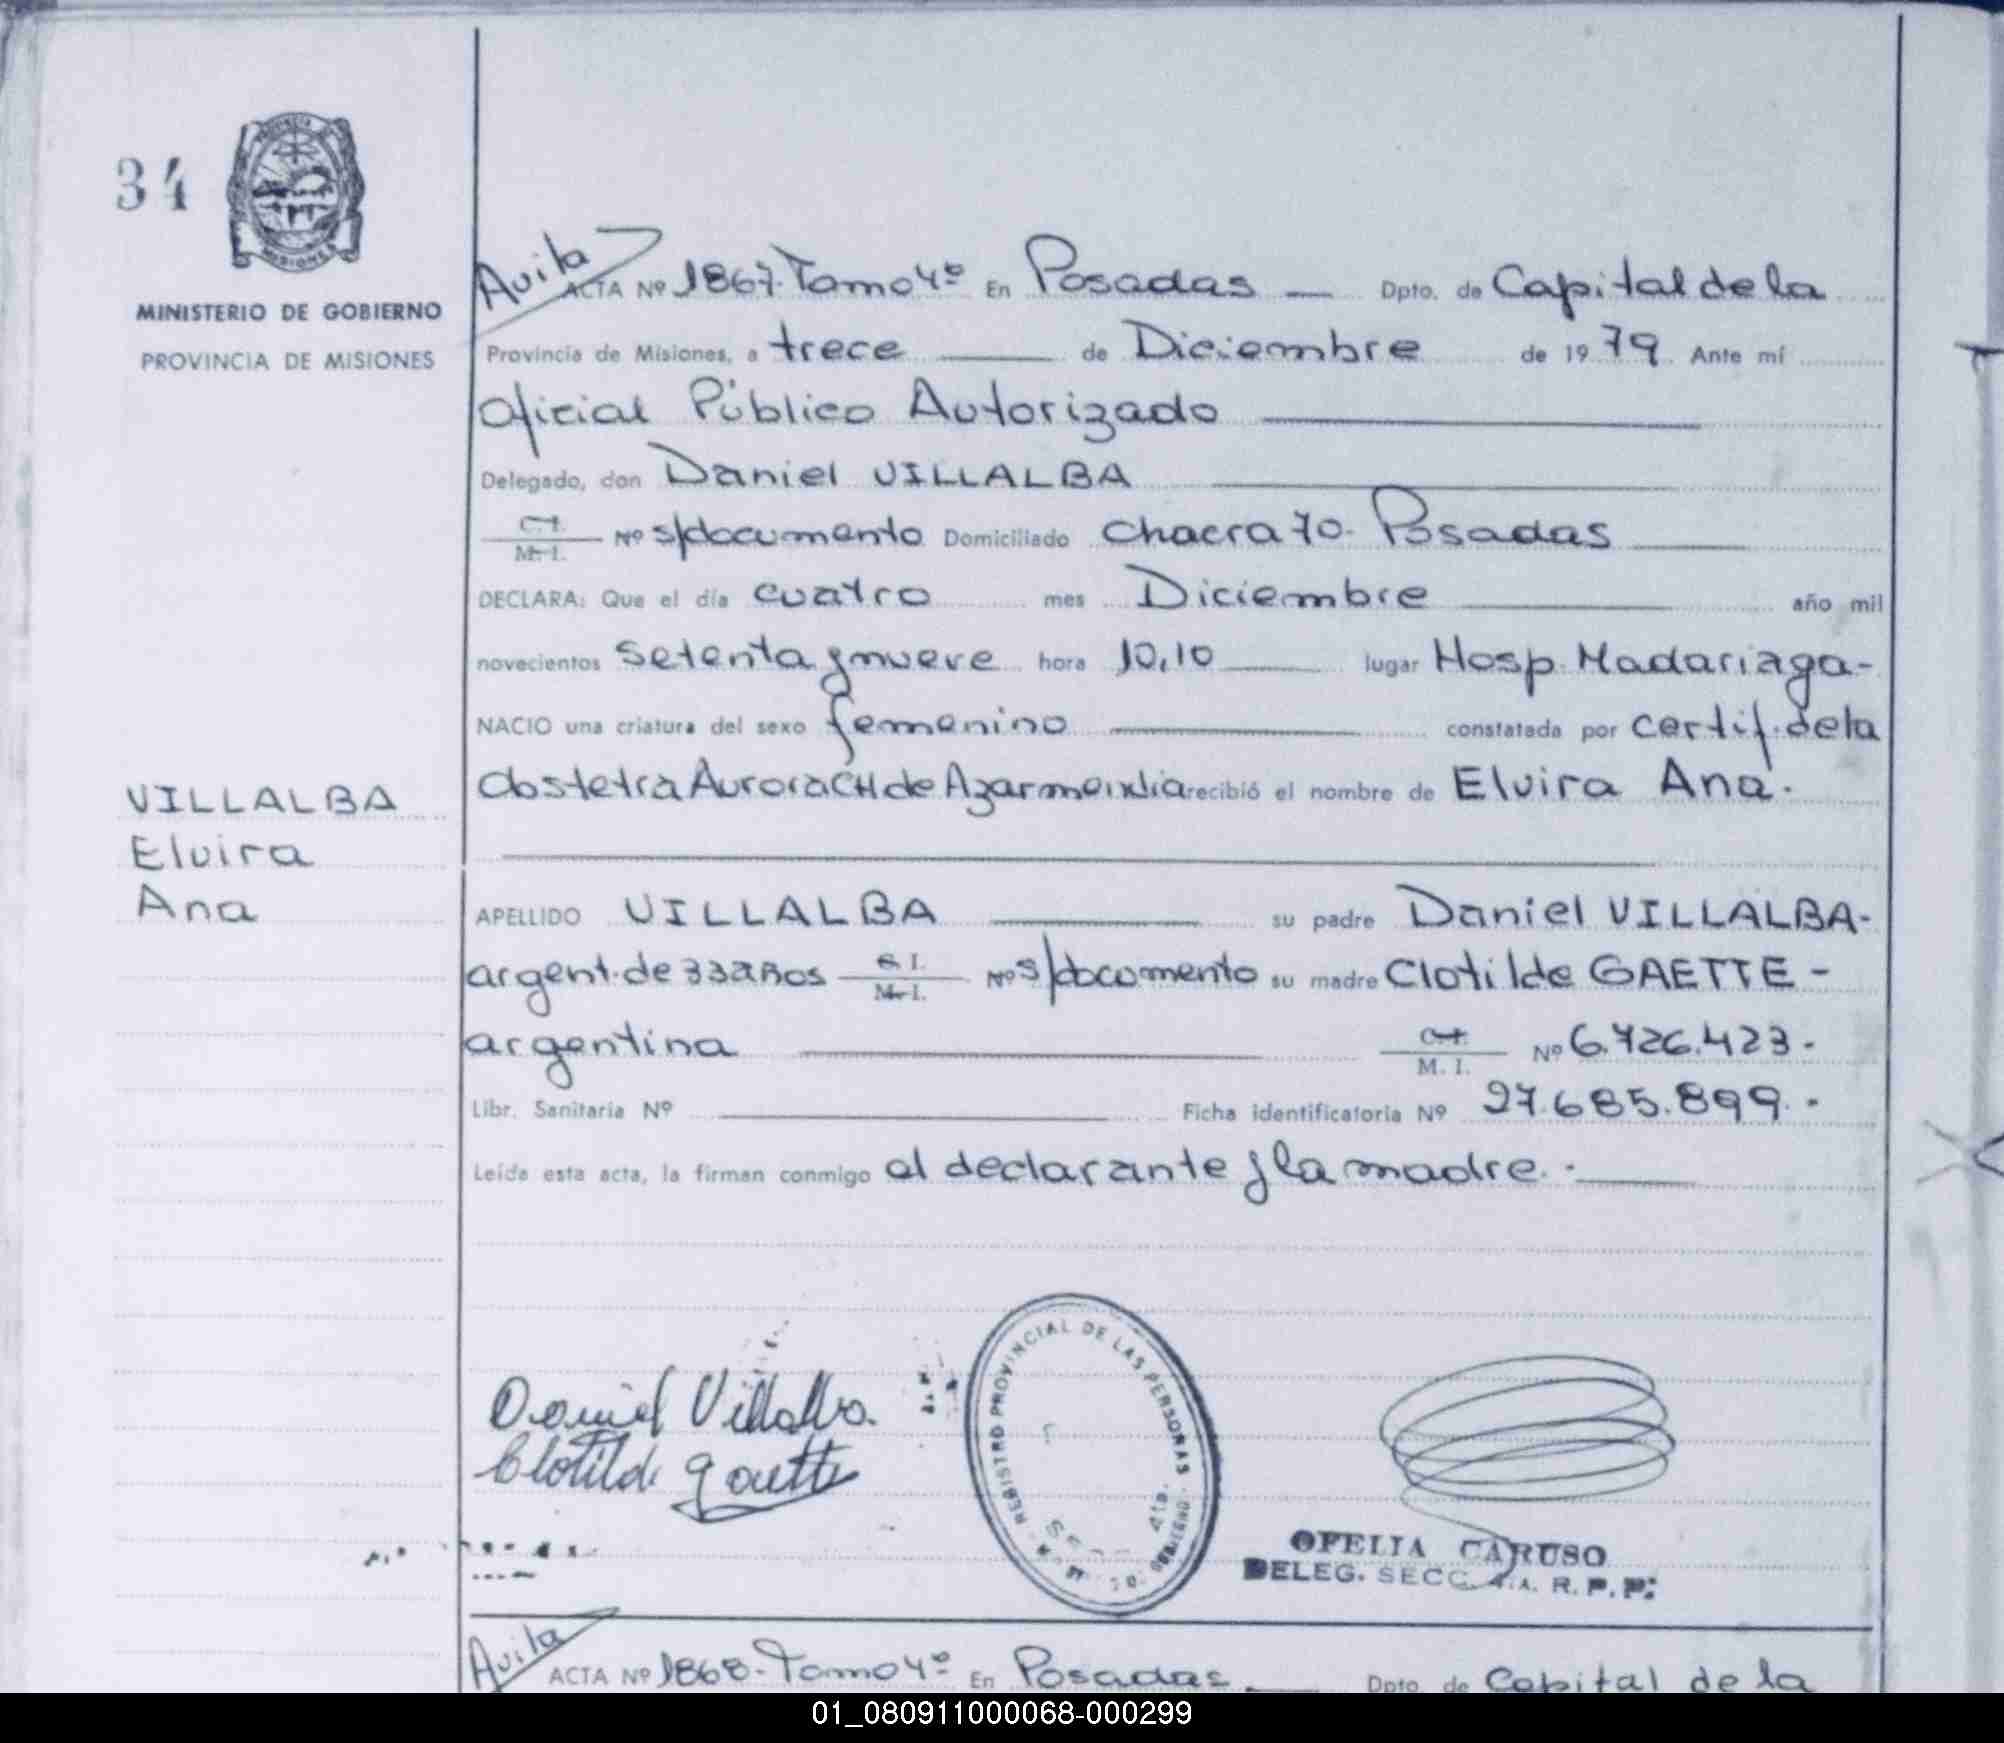 34
PROVINCIA DE
MISIONES
MINISTERIO DE GOBIERNO
PROVINCIA DE MISIONES
Avila
ACTA Nº 1867. Tomo 4º En Posadas — Dpto. de Capital de la
Provincia de Misiones, a trece de Diciembre de 19 79 Ante mí
Oficial Público Autorizado
Delegado, don Daniel VILLALBA
C.I. / M.I. Nº s/documento Domiciliado Chacra 70. Posadas
DECLARA: Que el día cuatro mes Diciembre año mil
novecientos setenta y nueve hora 10,10 lugar Hosp. Madariaga-
NACIO una criatura del sexo femenino constatada por certif. de la
Obstetra Aurora CH de Azarmendia recibió el nombre de Elvira Ana.
VILLALBA
Elvira
Ana
APELLIDO VILLALBA su padre Daniel VILLALBA-
argent. de 33 años C.I. / M.I. Nº s/documento su madre Clotilde GAETTE-
argentina C.I. / M.I. Nº 6.726.423.-
Libr. Sanitaria Nº Ficha identificatoria Nº 27.685.899.-
Leída esta acta, la firman conmigo el declarante y la madre.-
Daniel Villalba.
Clotilde Gaette
REGISTRO PROVINCIAL DE LAS PERSONAS
OFELIA CARUSO
DELEG. SECC. 4.A. R.P.P.
Avila
ACTA Nº 1868- Tomo 4º En Posadas — Dpto. de Capital de la
01_080911000068-000299